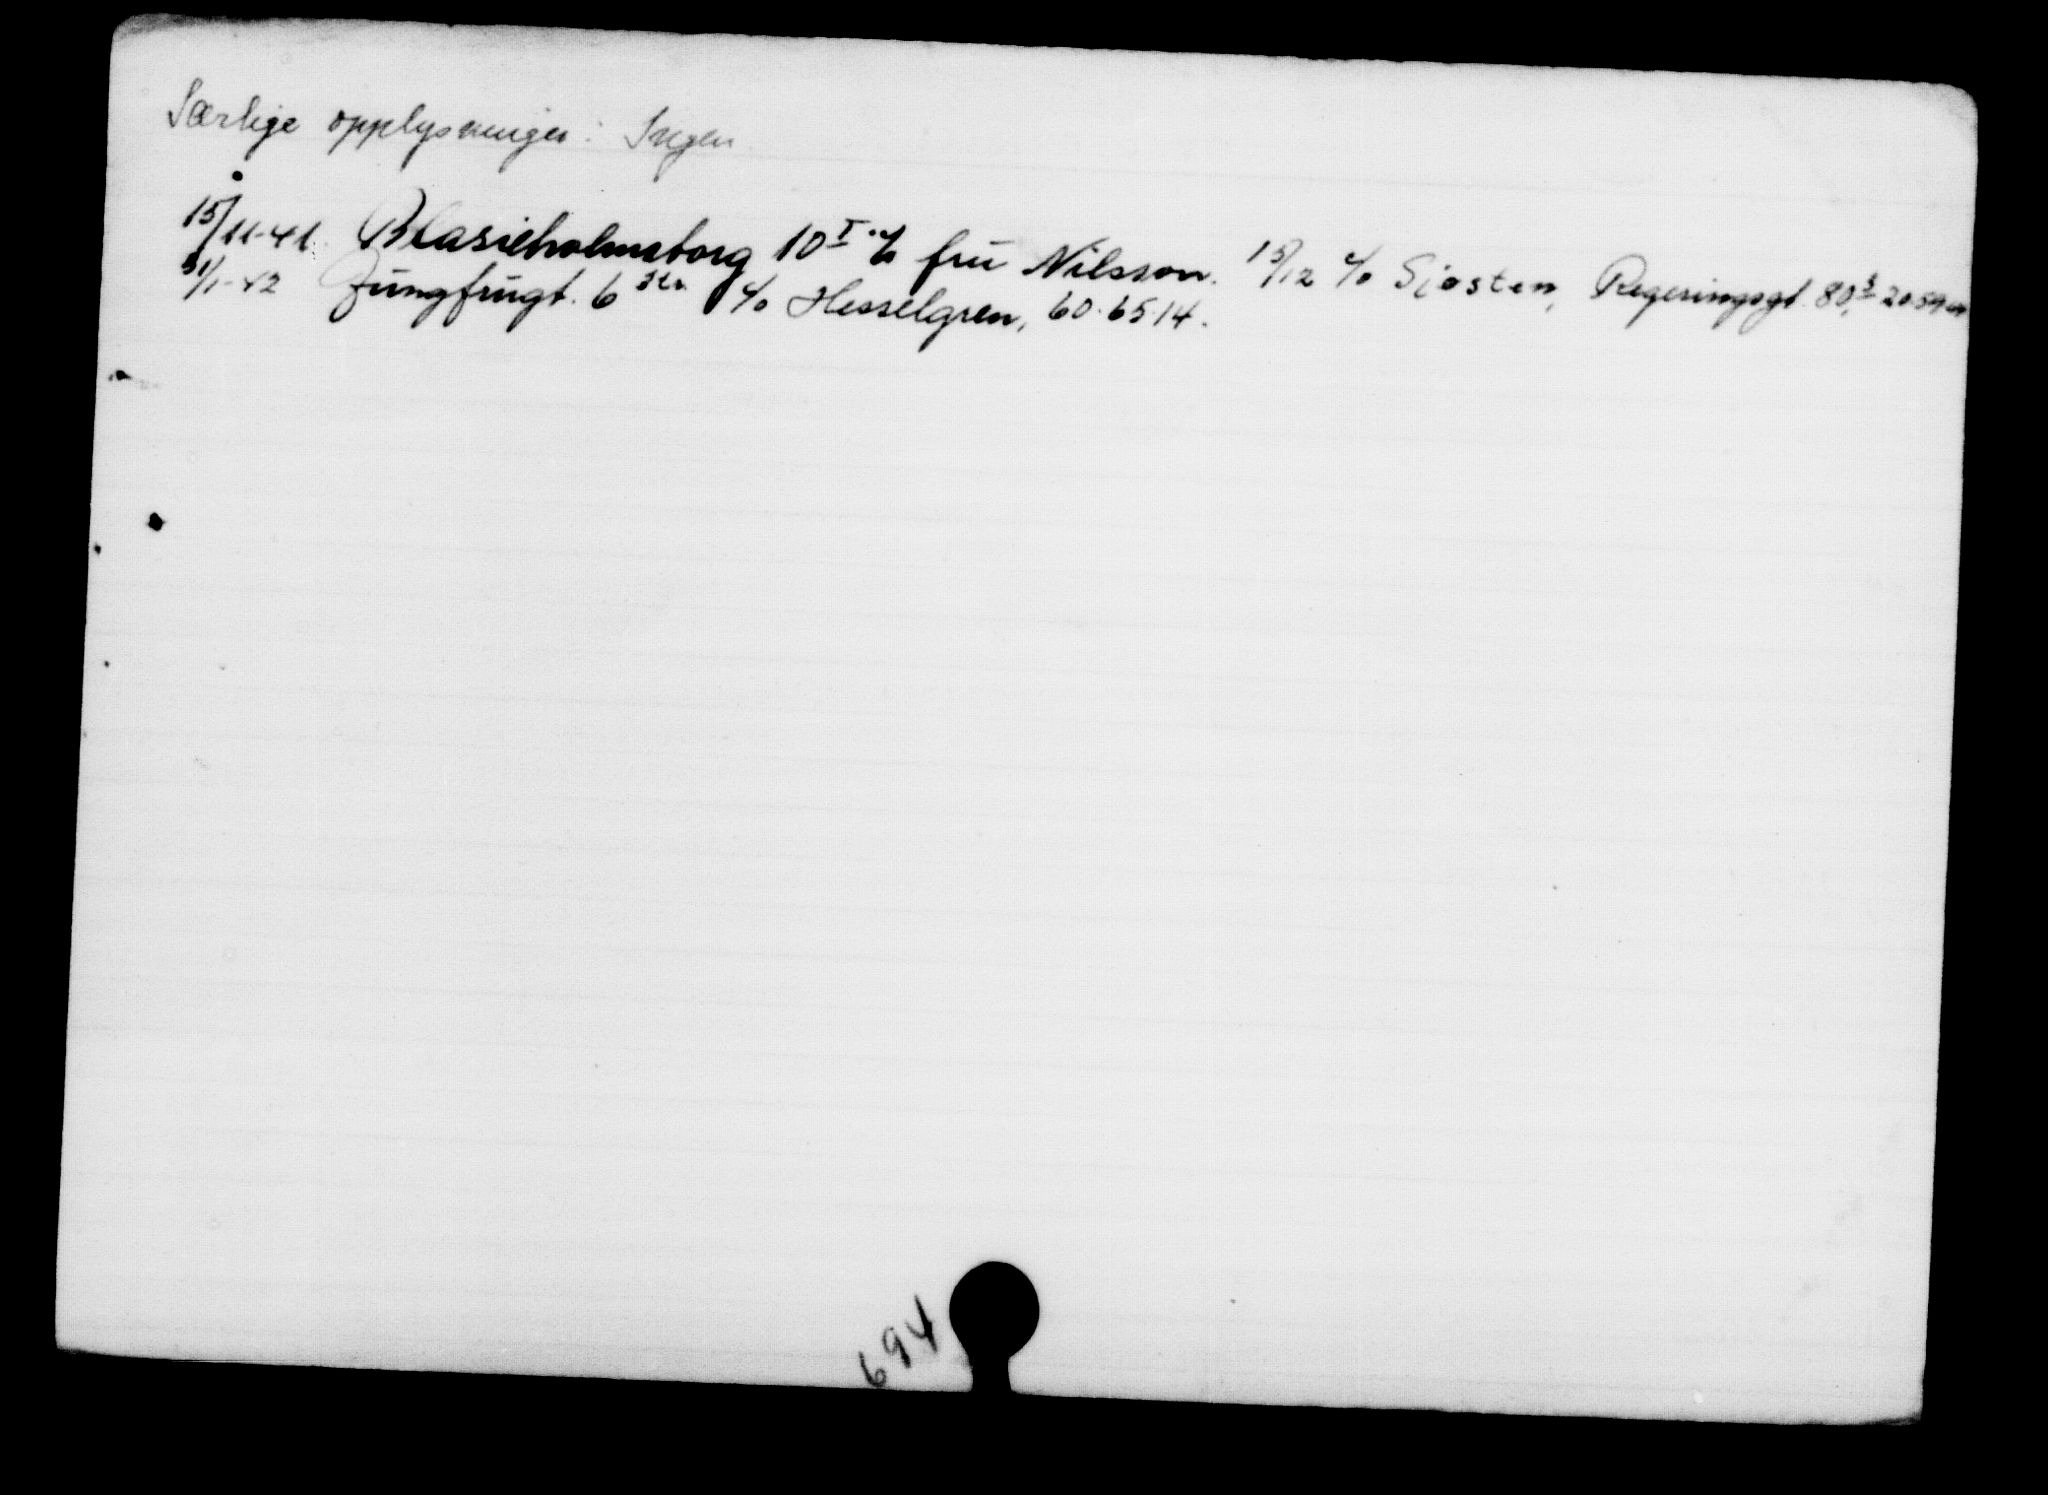 Særlige opplysninger: Ingen
15/11-41. Blasieholmstorg 10 I c/o fru Nilsson. 15/12 c/o Sjøsten, Regeringsgt. 80,
31/1-42 Jungfrugt. 6 3tr. c/o Hesselgren, 60.65.14.
694